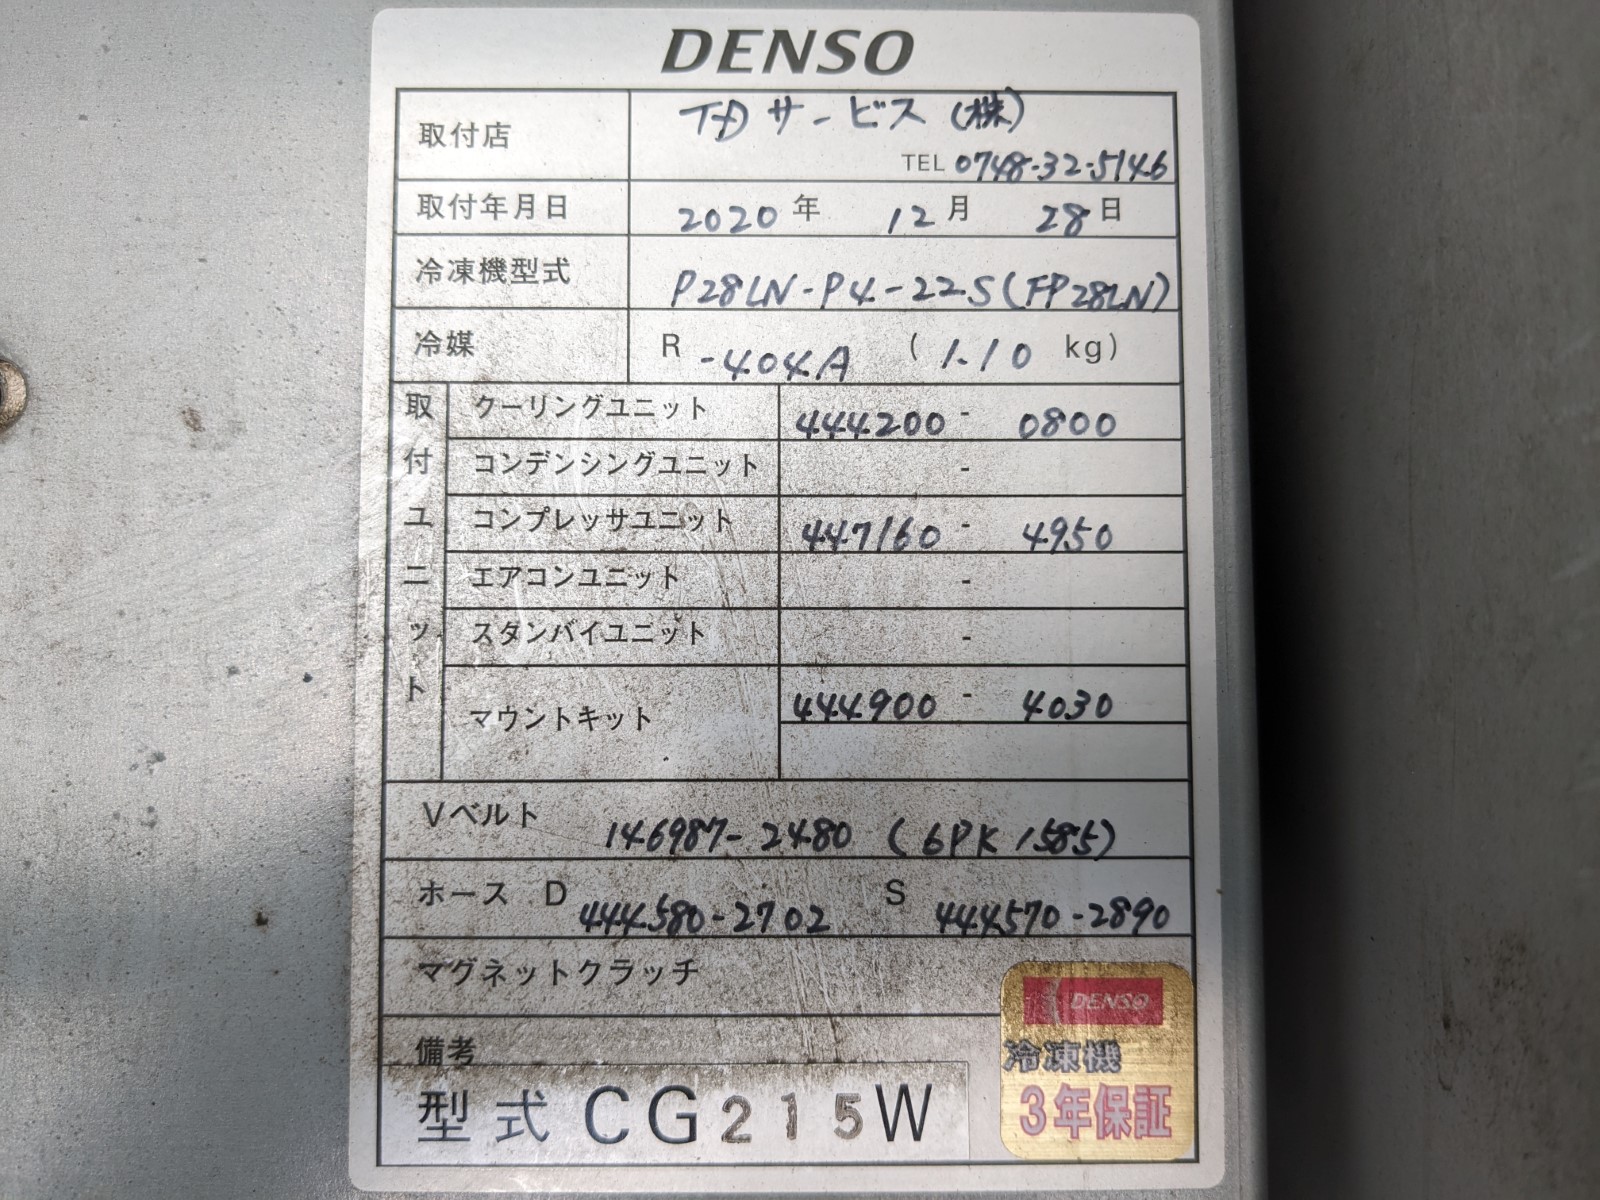 DENSO
取付店 TD サービス(株)
TEL 0748-32-5146
取付年月日 2020年 12月 28日
冷凍機型式 P28LN-P4-22S(FP28LN)
冷媒 R -404A (1.10 kg)
取付ユニット
クーリングユニット 444200 - 0800
コンデンシングユニット -
コンプレッサユニット 447160 - 4950
エアコンユニット -
スタンバイユニット -
マウントキット 444900 - 4030
Vベルト 146987-2480 (6PK1585)
ホース D 444580-2702 S 444570-2890
マグネットクラッチ
備考
型式 CG215W
DENSO
冷凍機
3年保証